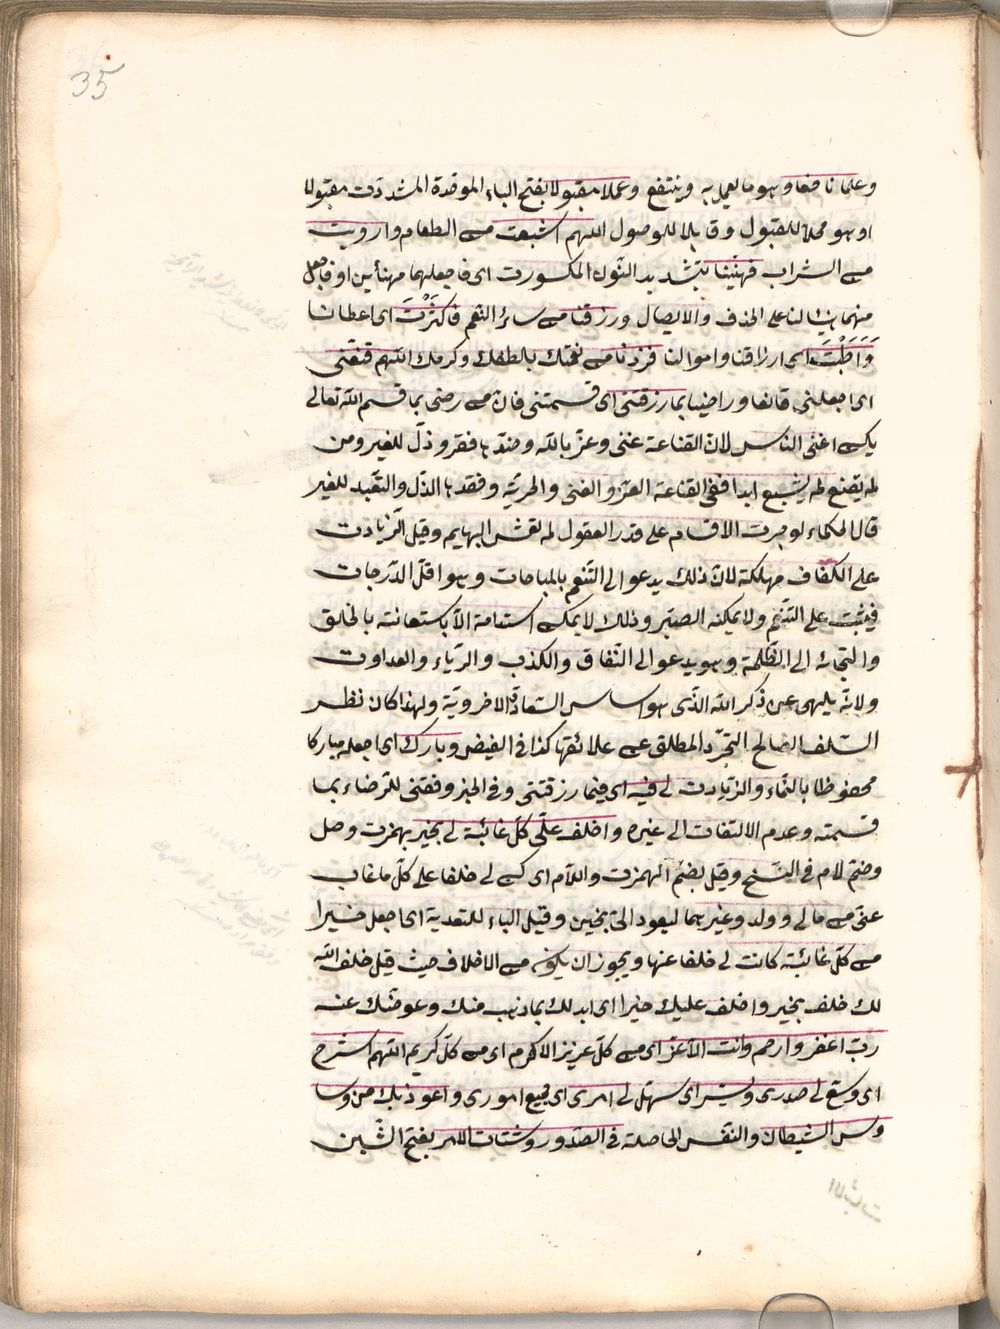 35
وعلما نافعا وهو ما يعمل به وينتفع وعملا مقبولا بفتح الباء الموحدة المشددة مقبولا
او هو محلا للقبول وقابلا للوصول اللهم اشبعت من الطعام وارويت
من الشراب فهنّينا بتشديد النون المكسورة اى فاجعلهما مهنأين او فاجعل
منهما هنيئا لنا على الحذف والايصال ورزقنا من سائر النعم فاكثرت اى اعطانا
واطبت اى ارزاقنا واموالنا فزدنا من نعمتك بالطفك وكرمك اللهم قنعنى
اى اجعلنى قانعا وراضيا بما رزقتنى اى قسمتنى فان من رضى بما قسم الله تعالى
يكن اغنى الناس لان القناعة غنى وعزّ بالله وضدّها فقر وذلّ للغير ومن
لم يقنع لم يشبع ابدا ففى القناعة العزّ والغنى والحريّة وفقدها الذلّ والتعبد للغير
قال الحكماء لو جرت الاقدام على قدر العقول لم تعش البهايم وقيل الزيادة
على الكفاف مهلكة لان ذلك يدعو الى التنعم بالمباحات وهو اقلّ الدّرجات
فيثبت على التنعّم ولا يمكنه الصبر وذلك لا يمكن استدامة الا باستعانته بالخلق
والتجائه الى الظلمة وهو يدعو الى النفاق والكذب والرياء والعداوة
ولانه يلهى عن ذكر الله الذى هو اساس السّعادة الاخروية ولهذا كان نظر
السّلف الصالح التجرّد المطلق عن علائقها كذا فى الفيض وبارك اى اجعله مباركا
محفوظا بالنماء والزيادة لى فيه اى فيما رزقتنى وفى الخبز وفقنى للرضاء بما
قسمته وعدم الالتفات الى غيره واخلف علىّ كلّ غائبة لى بخير بهمزة وصل
وضم لام فى النسخ وقيل بضم الهمزة واللام اى كن لى خلفا على كلّ ما غاب
عنى من مالى وولد وغيرهما ليعود الىّ بخير وقيل الباء للتعدية اى اجعل خيرا
من كلّ غائبة كانت لى خلفا عنها ويجوز ان يكون من الاخلاف حيث قيل خلف الله
لك خلف بخير واخلف عليك خيرا اى ابدلك بما ذهب منك وعوضك عنه
ربّ اغفر وارحم وانت الاعزّ اى من كلّ عزيز الاكرم اى من كلّ كريم اللهم اشرح
اى وسّع لى صدرى ويسّر اى سهّل لى امرى اى جميع امورى واعوذ بك من وسا
وس الشيطان والنفس الحاصلة فى الصّدور وشتات الامر بفتح الشّين